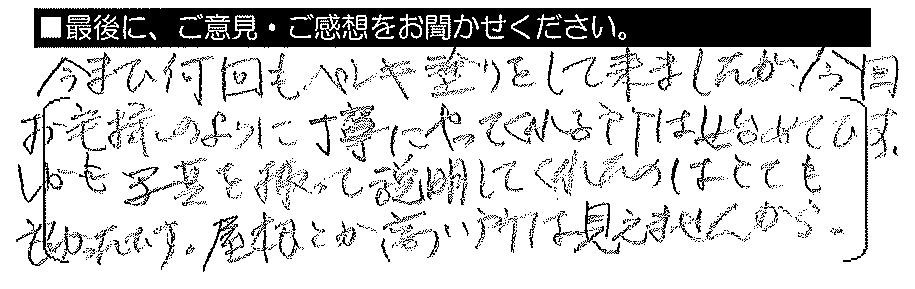 ■最後に、ご意見・ご感想をお聞かせください。
今まで何回もペンキ塗りをして来ましたが、今回
お宅様のように丁寧にやってくれる所は始めてです。
しかも写真を撮って説明してくれたのはとても
良かったです。屋根とか高い所は見えませんから。